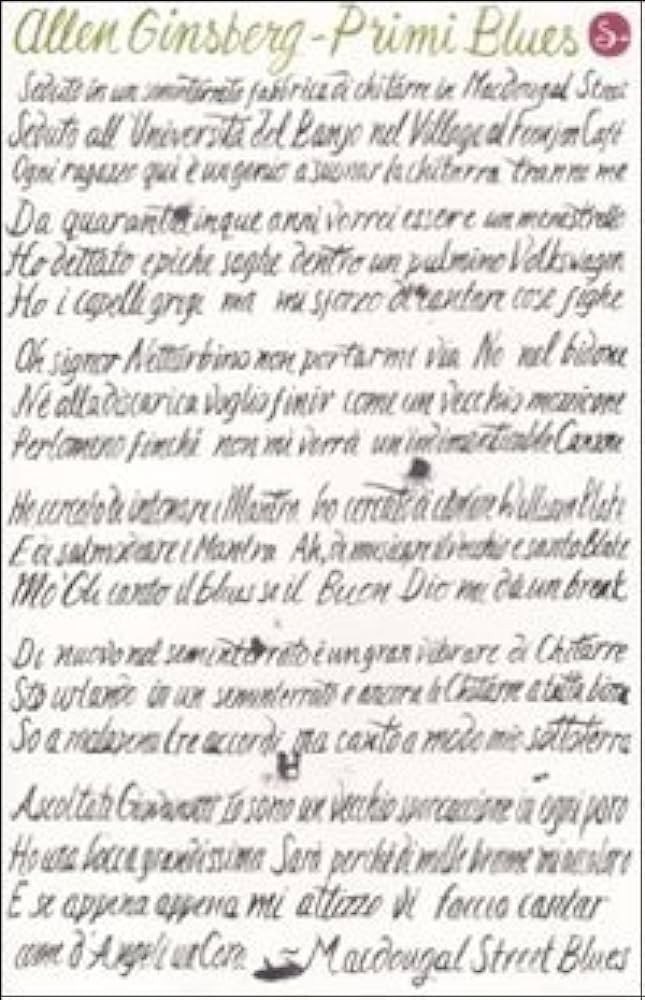 Allen Ginsberg - Primi Blues S+
Seduto in un seminterrato fabbrica di chitarre in Macdougal Street
Seduto all'Università del Banjo nel Village al Feenjon Café
Ogni ragazzo qui è un genio a suonar la chitarra tranne me
Da quarantacinque anni vorrei essere un menestrello
Ho dettato epiche saghe dentro un pulmino Volkswagen
Ho i capelli grigi ma mi sforzo di cantare cose fighe
Oh signor Netturbino non portarmi via No nel bidone
Né alla discarica voglio finir come un vecchio mozzicone
Perlomeno finché non mi verrà un'indimenticabile Canzone
Ho cercato di intonare i Mantra ho cercato di cantare William Blake
E di salmodiare i Mantra Ah, di musicare il vecchio e santo Blake
Mo' Gli canto il blues se il Buon Dio mi dà un break
Di nuovo nel seminterrato è un gran vibrare di Chitarre
Sto urlando in un seminterrato e ancora le Chitarre a tutta birra
So a malapena tre accordi, ma canto a modo mio sottoterra
Ascoltate Giovanotti Io sono un vecchio sporcaccione in ogni poro
Ho una bocca grandissima Sarà perché di mille brame mi
E se appena appena mi attizzo Vi faccio cantar
come d'Angeli un Coro ~ Macdougal Street Blues